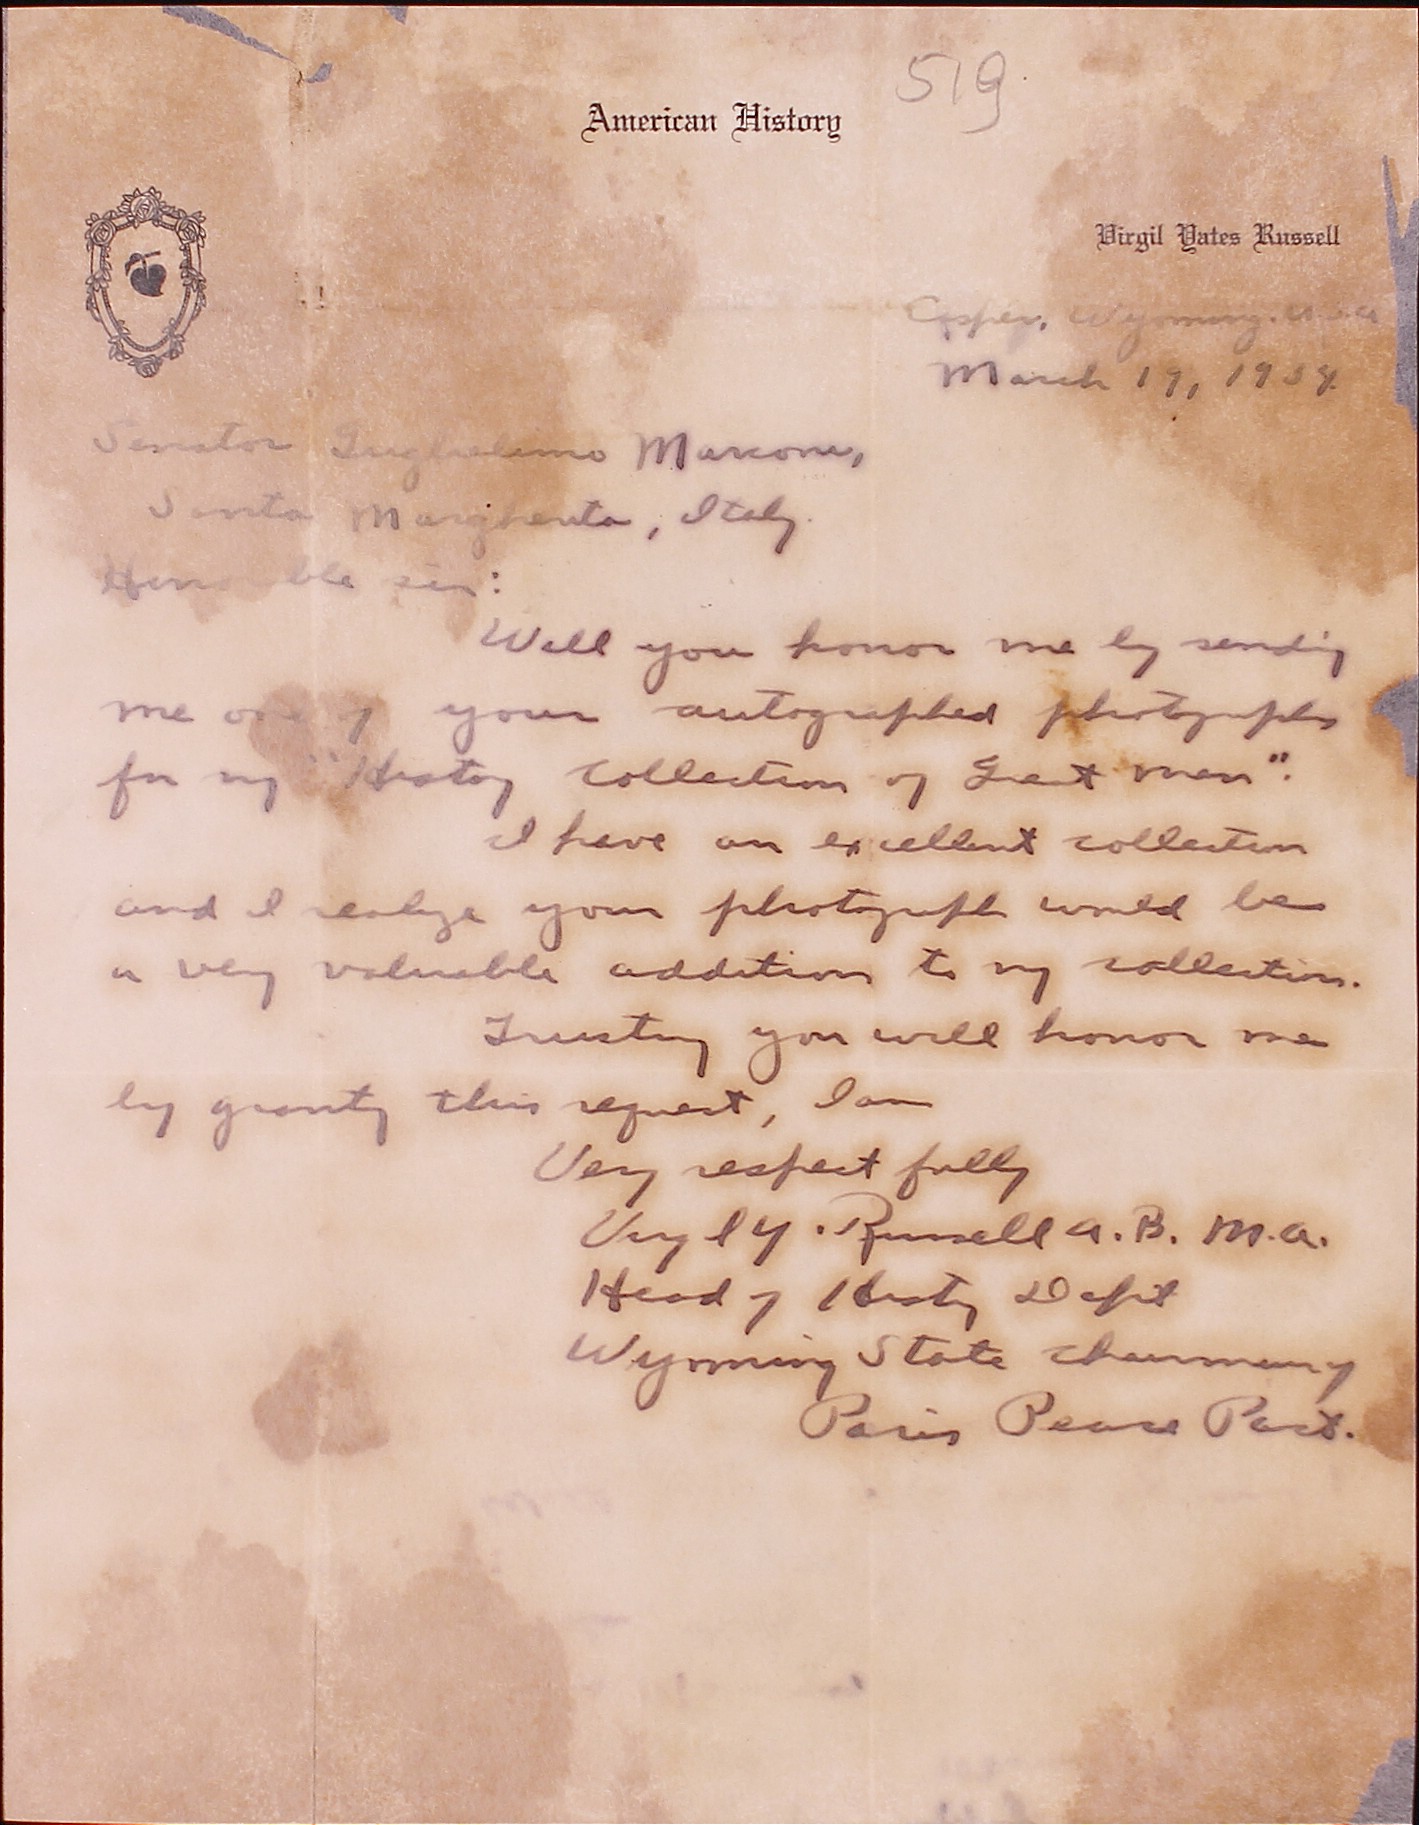 519
American History
Virgil Yates Russell
Casper, Wyoming. U.S.A
March 19, 1934.
Senator Guglielimo Marconi,
Santa Margherita, Italy.
Honorable sir:
Will you honor me by sending
me one of your autographed photographs
for my "History collection of Great men".
I have an excellent collection
and I realize your photograph would be
a very valuable addition to my collection.
Trusting you will honor me
by granting this request, I am
Very respectfully
Virgil Y. Russell A.B. M.A.
Head of History Dept
Wyoming State chairman of
Paris Peace Pact.